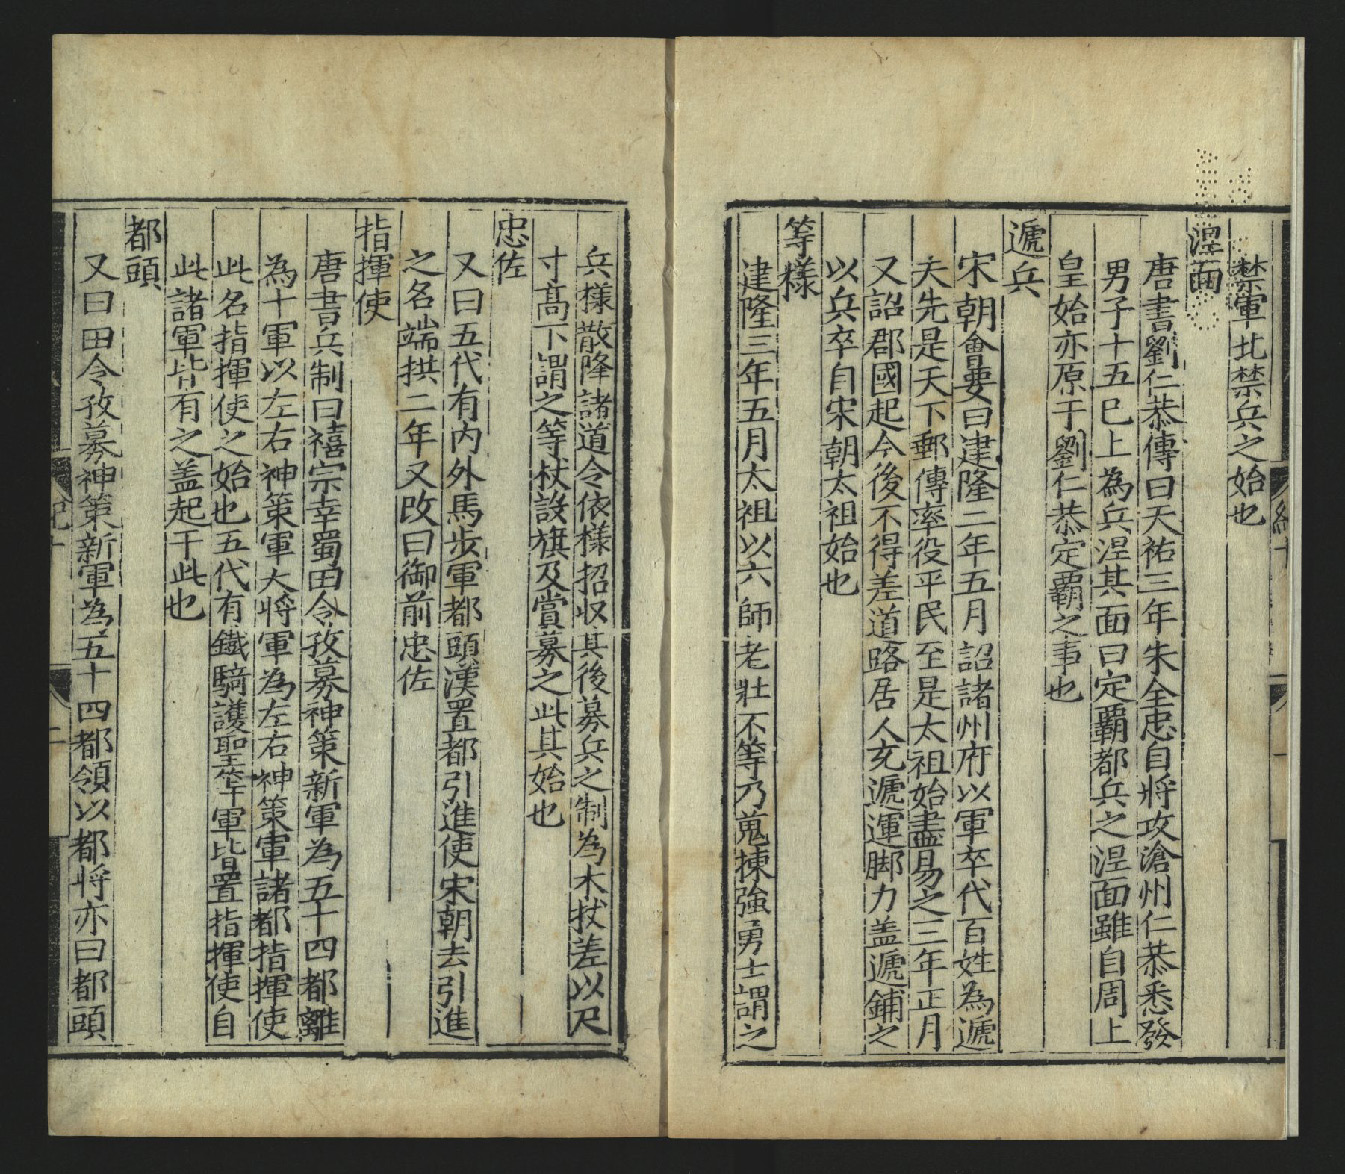 禁軍北禁兵之始也
湼面
唐書劉仁恭傳曰天祐三年朱全忠自將攻滄州仁恭悉發
男子十五巳上為兵湼其面曰定覇都兵之湼面雖自周上
皇始亦原于劉仁恭定覇之事也
遞兵
宋朝會要曰建隆二年五月詔諸州府以軍卒代百姓為遞
夫先是天下郵傳率役平民至是太祖始盡易之三年正月
又詔郡國起今後不得差道路居人充遞運脚力盖遞鋪之
以兵卒自宋朝太祖始也
等樣
建隆三年五月太祖以六師老壯不等乃蒐揀強勇士謂之
兵樣散降諸道令依樣招収其後募兵之制為木杖差以尺
寸高下謂之等杖設旗及賞募之此其始也
忠佐
又曰五代有内外馬步軍都頭漢置都引進使宋朝去引進
之名端拱二年又改曰御前忠佐
指揮使
唐書兵制曰禧宗幸蜀田令孜募神策新軍為五十四都離
為十軍以左右神策軍大將軍為左右神策軍諸都指揮使
此名指揮使之始也五代有鐵騎護聖等軍皆置指揮使自
此諸軍皆有之盖起于此也
都頭
又曰田令孜募神策新軍為五十四都領以都將亦曰都頭